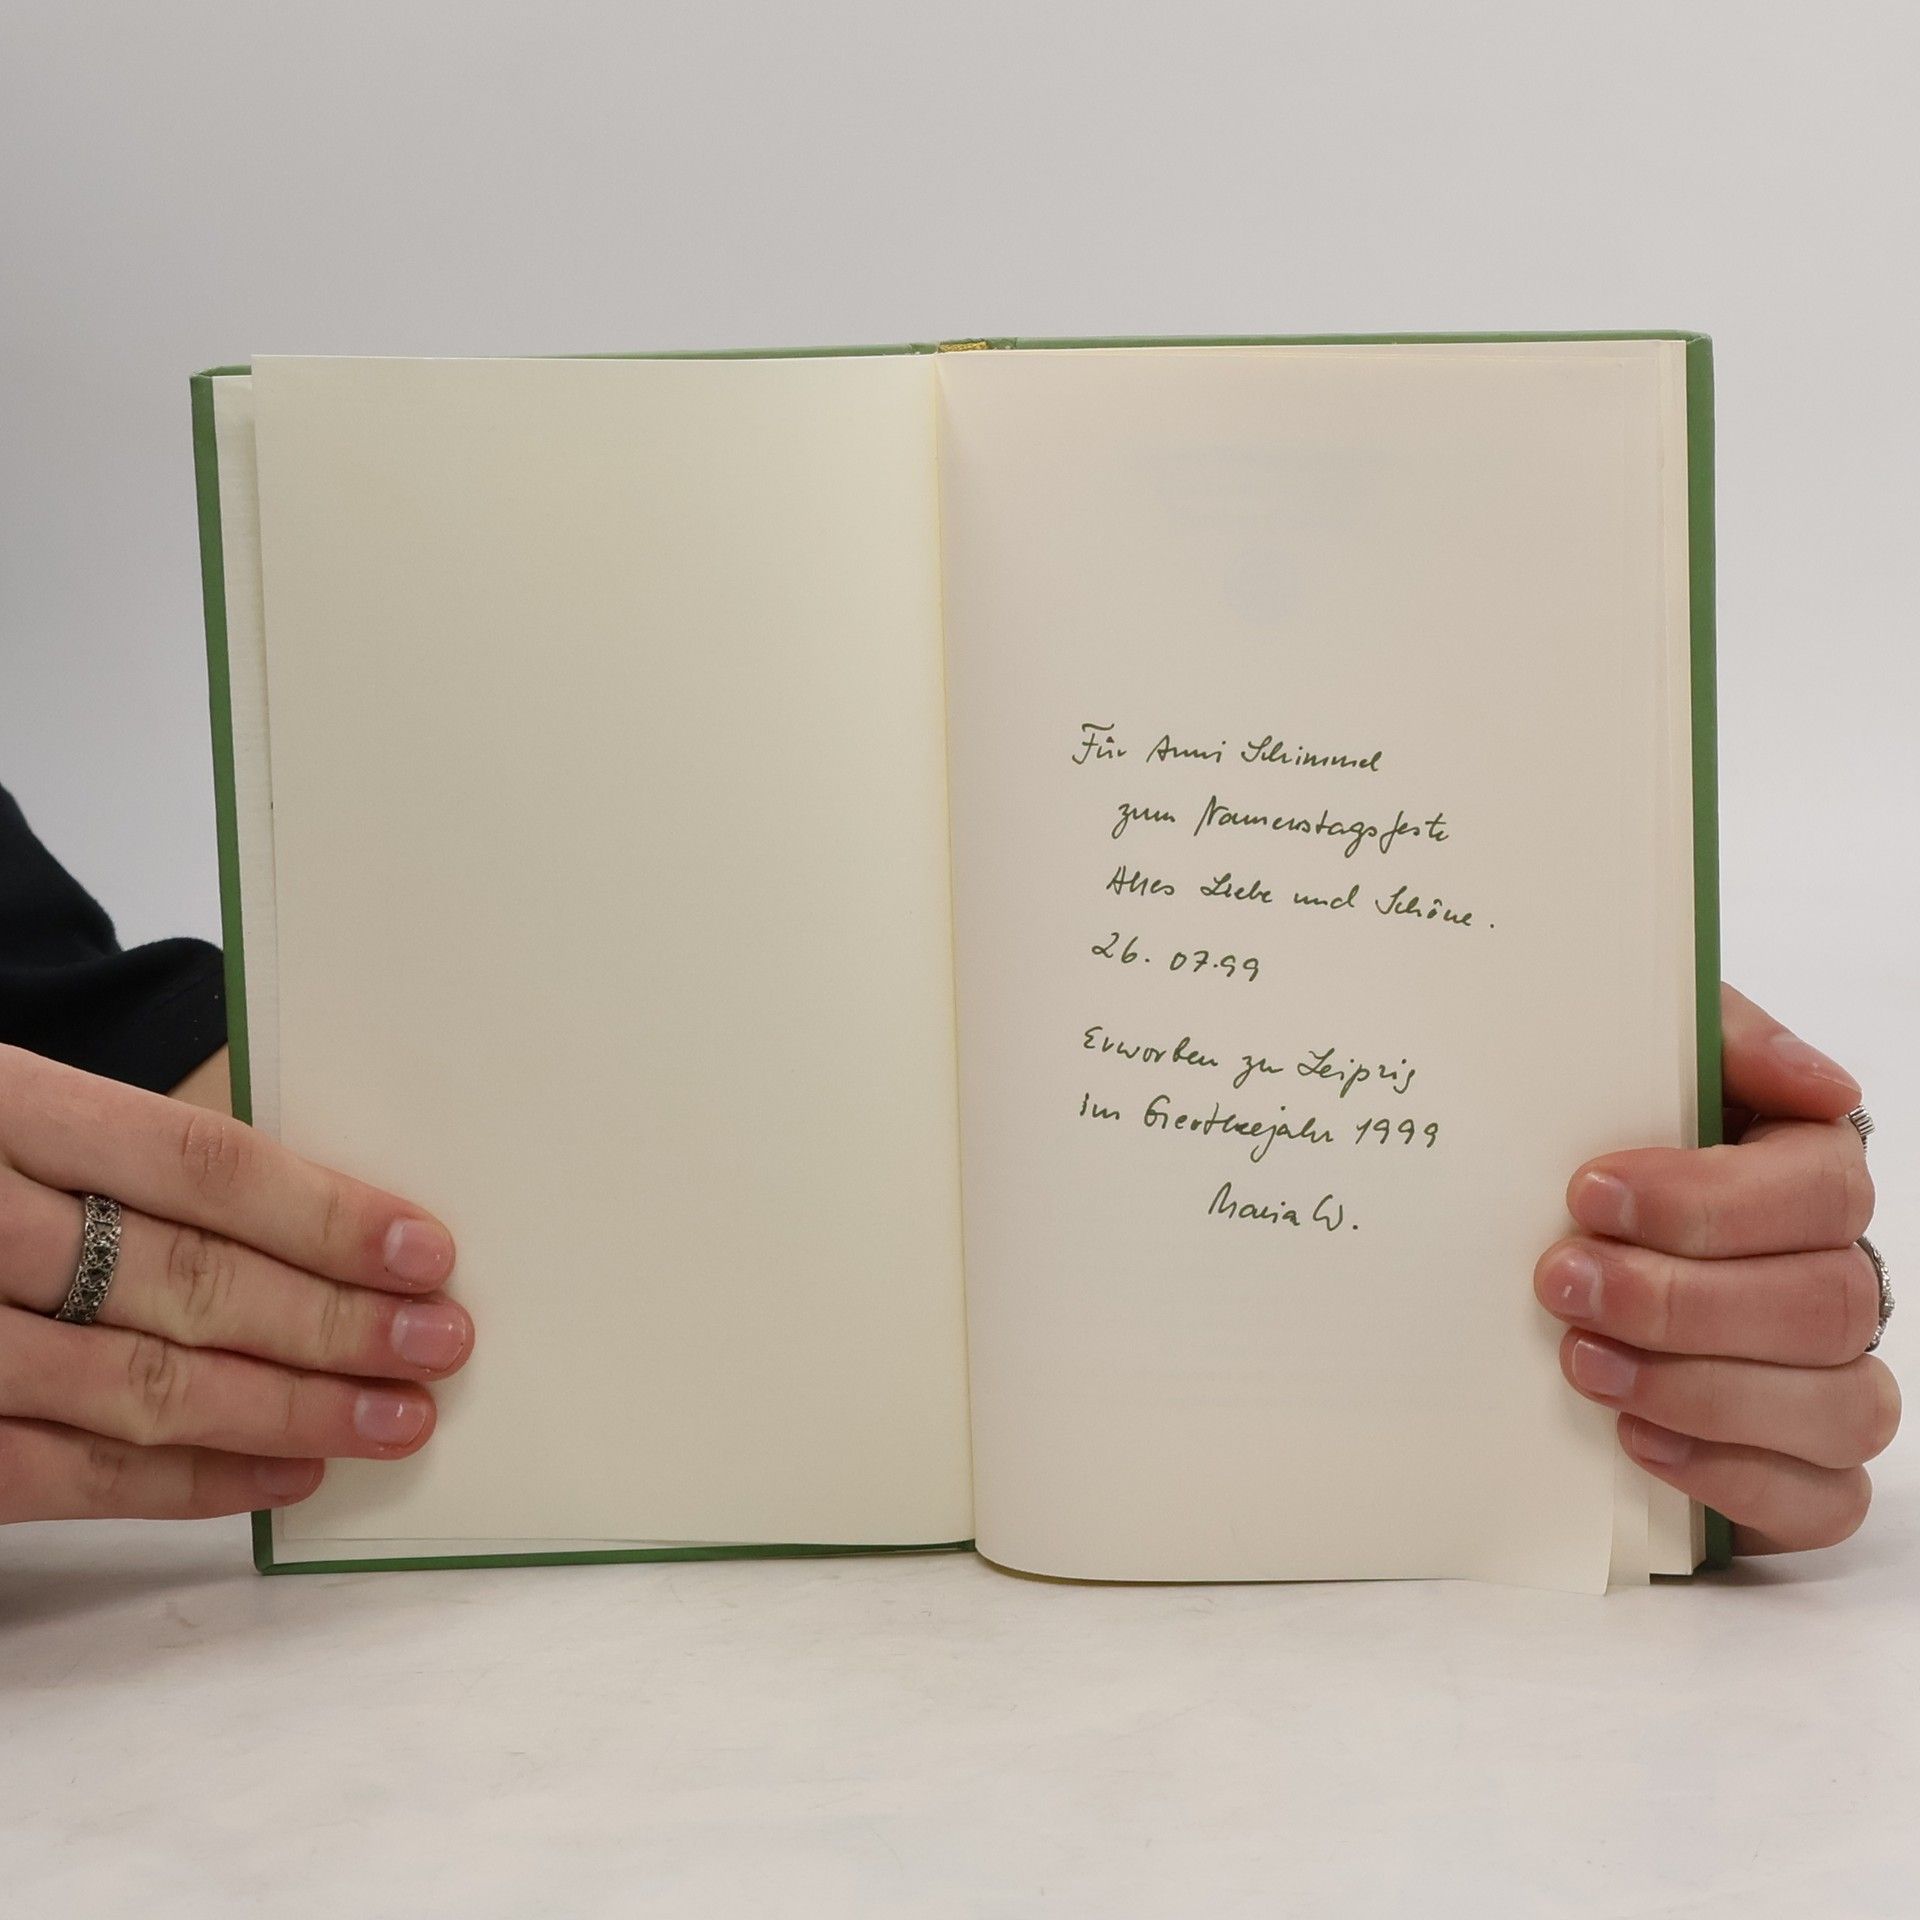 Für Anni Schimmel
zum Namenstagsfeste
Alles Liebe und Schöne.
26. 07.99
Erworben zu Leipzig
im Goethejahr 1999
Maria W.